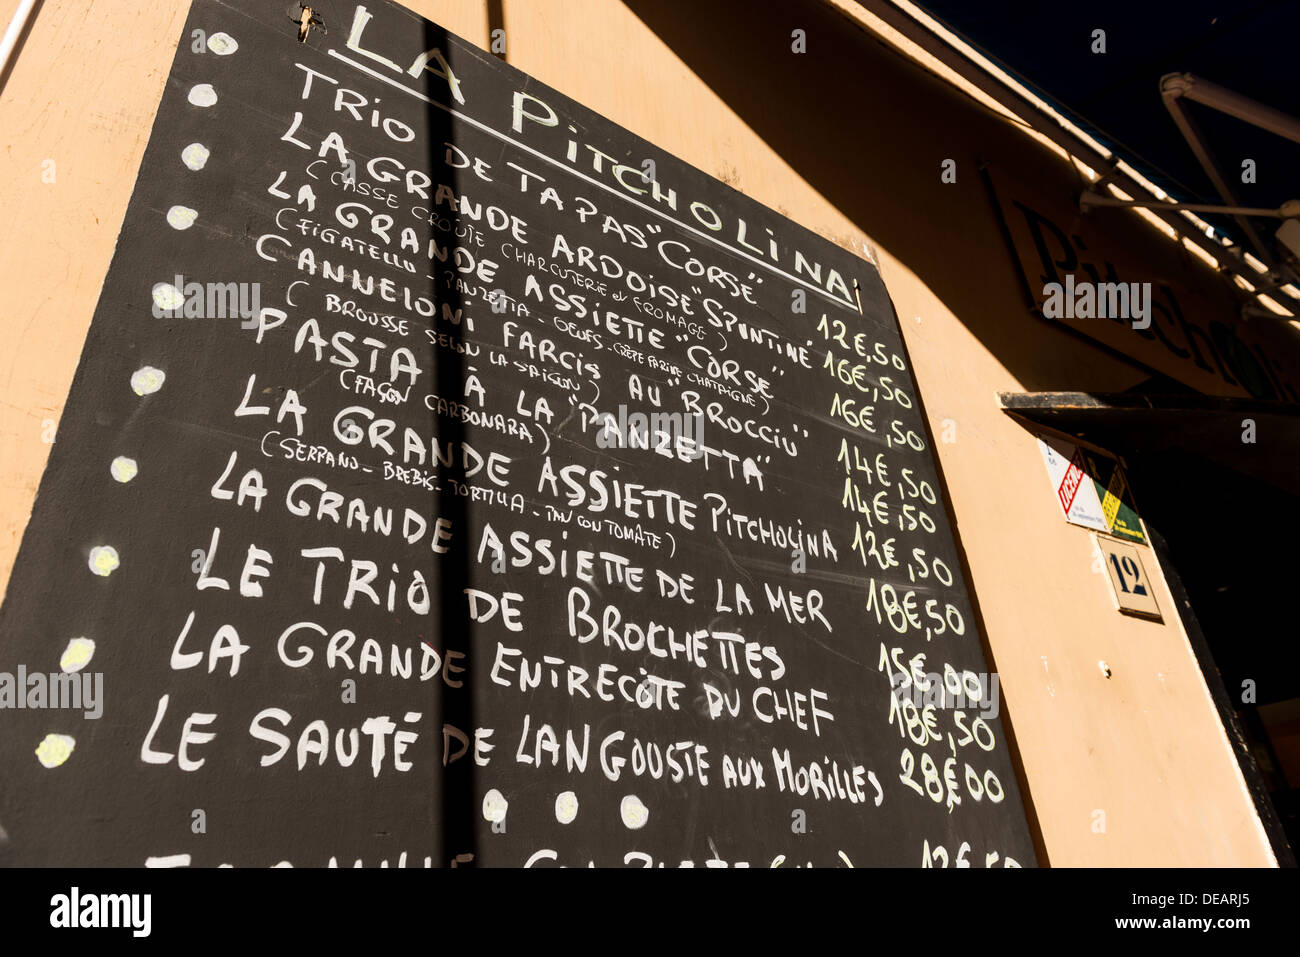 LA PITCHOLINA
TRIO DE TAPAS "CORSE" 12€,50
LA GRANDE ARDOISE "SPUNTINE" 16€,50
(CASSE CROUTE CHARCUTERIE et FROMAGE)
LA GRANDE ASSIETTE "CORSE" 16€,50
(FIGATELLO - PANZETTA - OEUFS - CRÊPE FARINE CHATAIGNE)
CANNELONI FARCIS AU "BROCCIU" 14€,50
(BROUSSE SELON LA SAISON)
PASTA À LA "PANZETTA" 14€,50
(FAÇON CARBONARA)
LA GRANDE ASSIETTE PITCHOLINA 12€,50
(SERRANO - BREBIS - TORTILLA - PAN CON TOMATE)
LA GRANDE ASSIETTE DE LA MER 18€,50
LE TRIO DE BROCHETTES 15€,00
LA GRANDE ENTRECÔTE DU CHEF 18€,50
LE SAUTÉ DE LANGOUSTE AUX MORILLES 28€,00
12€,50
Pitchol
LICENCE
12
alamy
Image ID: DEARJ5
www.alamy.com